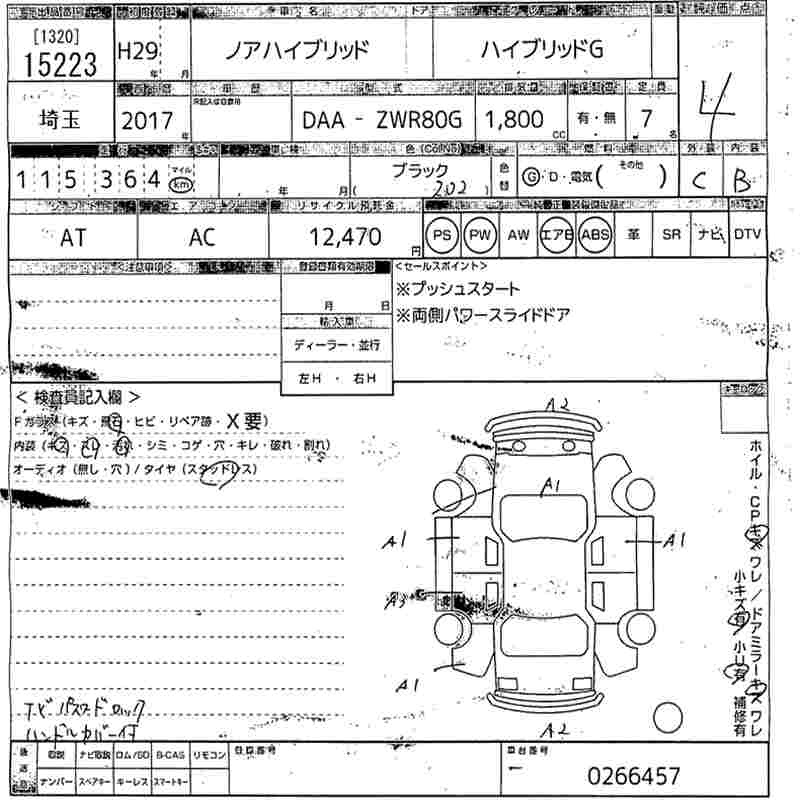 [1320]
15223
H29
年 月
ノアハイブリッド
ハイブリッドG
4
埼玉
2017 年
型 式
DAA - ZWR80G
1,800 CC
有・無
定 員
7 名
115,364
マイル
km
年 月
色 (Col No)
ブラック
( 202 )
色替
燃 料
G・D・電気( その他 )
外 装
C
内 装
B
シフト
AT
エアコン
AC
リサイクル預託金
12,470 円
PS PW AW エアB ABS 革 SR ナビ DTV
<注意事項>
登録書類有効期限
月 日
輸入車
ディーラー・並行
左H ・ 右H
<セールスポイント>
※プッシュスタート
※両側パワースライドドア
< 検査員記入欄 >
Fガラス (キズ・飛石・ヒビ・リペア跡・X要)
内装 (キズ・ヨゴレ・スレ・シミ・コゲ・穴・キレ・破れ・割れ)
オーディオ (無し・穴) / タイヤ (スタッドレス)
A2
A1
A1
A1
A3
A1
A2
ホイル・CPキズワレ / ドアミラーキズワレ
小キズ有 小U有 補修有
ナビパスワードロック
ハンドルカバー付
後送品
取説 ナビ取説 ロム/SD B-CAS リモコン
ナンバー スペアキー キーレス スマートキー
登録番号
車台番号
0266457